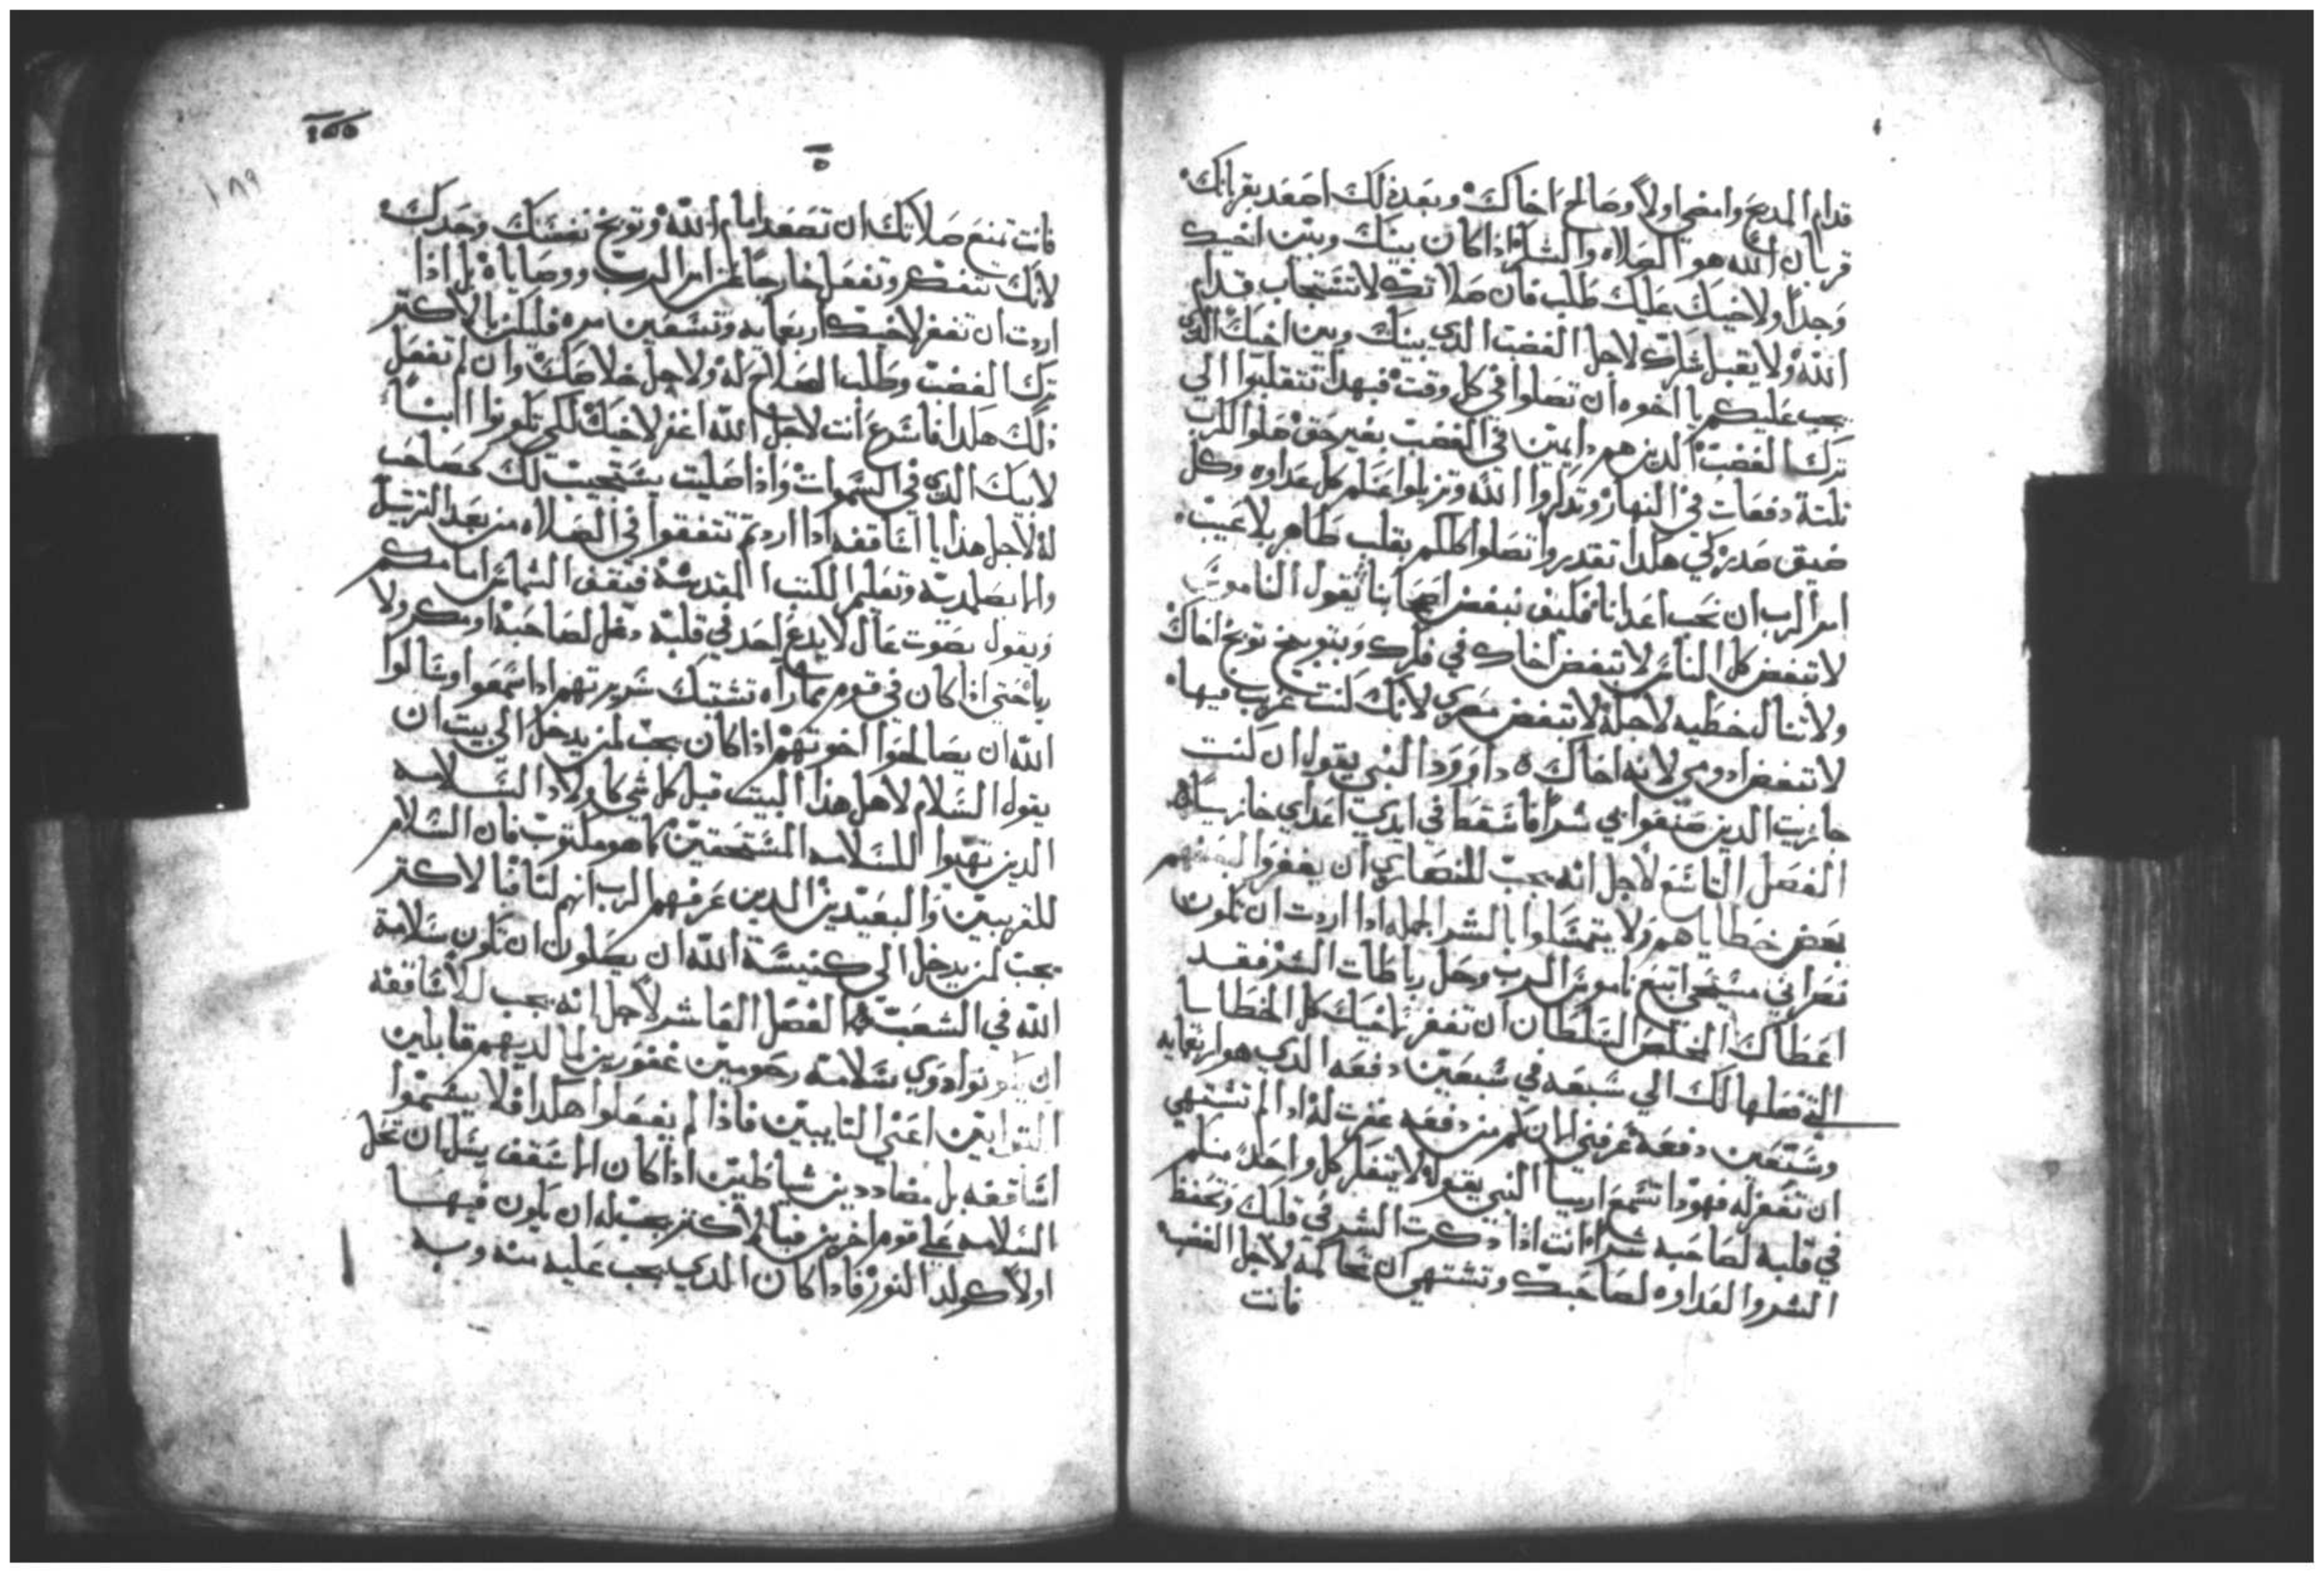 قدام المدبح وامضي اولاً وصالح اخاك وبعد ذلك اصعد بقربانك
قربان الله هو الصلاه والشكر اذا كان بينك وبين اخيك
وجداً ولاخيك عليك طلب فان صلاتك لا تستجاب قدام
الله ولا يقبل شكرك لاجل الغضب الدي بينك وبين اخيك الدي
يجب عليكم يا اخوه ان تصلوا في كل وقت فبهدا تتقلبوا الي
ترك الغضب الدين هم دايمين في الغضب بغير حق صلوا للرب
تلتة دفعات في النهار وتدكروا الله وتزيلوا عنكم كل عداوه وكل
ضيق صدر لكي هكدا تقدروا تصلوا كلكم بقلب طاهر بلا عيب
امر الرب ان نحب اعدانا فكيف نبغض اصحابنا يقول الناموس
لا تبغض كل الناس لا تبغض اخاك في فكرك وبتوبيخ توبخ اخاك
ولا تنال خطيه لاجله لا تبغض مصري لانك كنت غريب فيها
لا تبغض ادومي لانه اخاك داوود النبي يقول ان كنت
جازيت الدين صنعوا بي شراً فاسقط في ايدي اعداي خازيياً
الفصل التاسع لاجل انه يجب للنصاري ان يغفروا لبعضهم
بعض خطاياهم ولا يتمسكوا بالشر الجمله ادا اردت ان تكون
نصراني مسيحي اتبع ناموس الرب وحل رباطات الشر فقد
اعطاك المخلص السلطان ان تغفر لاخيك كل الخطايا
التي فعلها لك الي سبعه في سبعين دفعه الدي هو اربعمايه
وتسعين دفعة عرفني الان كم من دفعه غفرت له ادا لم تشتهي
ان تغفر له فهودا تسمع ارميا النبي يقول لا يتفكر كل واحد منكم
في قلبه لصاحبه شراً وانت ادا دكرت الشر في قلبك وتحفظ
الشر والعداوه لصاحبك وتشتهي ان تحاكمه لاجل الغضب
فانت
١٨٩
فانت تمنع صلاتك ان تصعد امام الله وتوبخ نفسك وحدك
لانك تتفكر وتفعل خارجاً عن امر الرب ووصاياه بل اذا
اردت ان تغفر لاخيك اربعمايه وتسعين مره فليكن بالاكتر
ترك الغضب وطلب الصلاح له ولاجل خلاصك وان لم تفعل
ذلك هكدا فاسرع انت لاجل الله اغفر لاخيك لكي تكونوا ابناً
لابيك الدي في السموات واذا صليت يستجيب لك كصاحب
له لاجل هذا يا اساقفه ادا اردتم تتفقوا في الصلاه من بعد الترتيل
والابصلمديه وتعليم الكتب المقدسة فيقف الشماس امامكم
ويقول بصوت عال لا يدع احد في قلبه دغل لصاحبه او مكر ولا
ريا حتي اذا كان في قوم مماراه تشتبك سريرتهم ادا سمعوا وسالوا
الله ان يصالحوا اخوتهم اذا كان يجب لمن يدخل الي بيت ان
يقول السلام لاهل هذا البيت قبل كل شي كاولاد السلامه
الدين تهبوا للسلامه المستحقين كما هو مكتوب فان السلام
للقريبين والبعيدين الدين عرفهم الرب انهم لنا فبالاكتر
يجب لمن يدخل الي كنيسة الله ان يصلون ان تكون سلامة
الله في الشعب الفصل العاشر لاجل انه يجب للاساقفه
ان يكونوا دوي سلامة رحومين غفورين لما لديهم قابلين
التوابين اعني التايبين فاذا لم يفعلوا هكدا فلا يسموا
اساقفه بل مضاددين شياطين اذا كان الاسقف يسل ان تحل
السلامه علي قوم اخرين فبالاكتر يجب له ان يكون فيها
اولاً كولد النور فادا كان الدي يجب عليه منه وبه